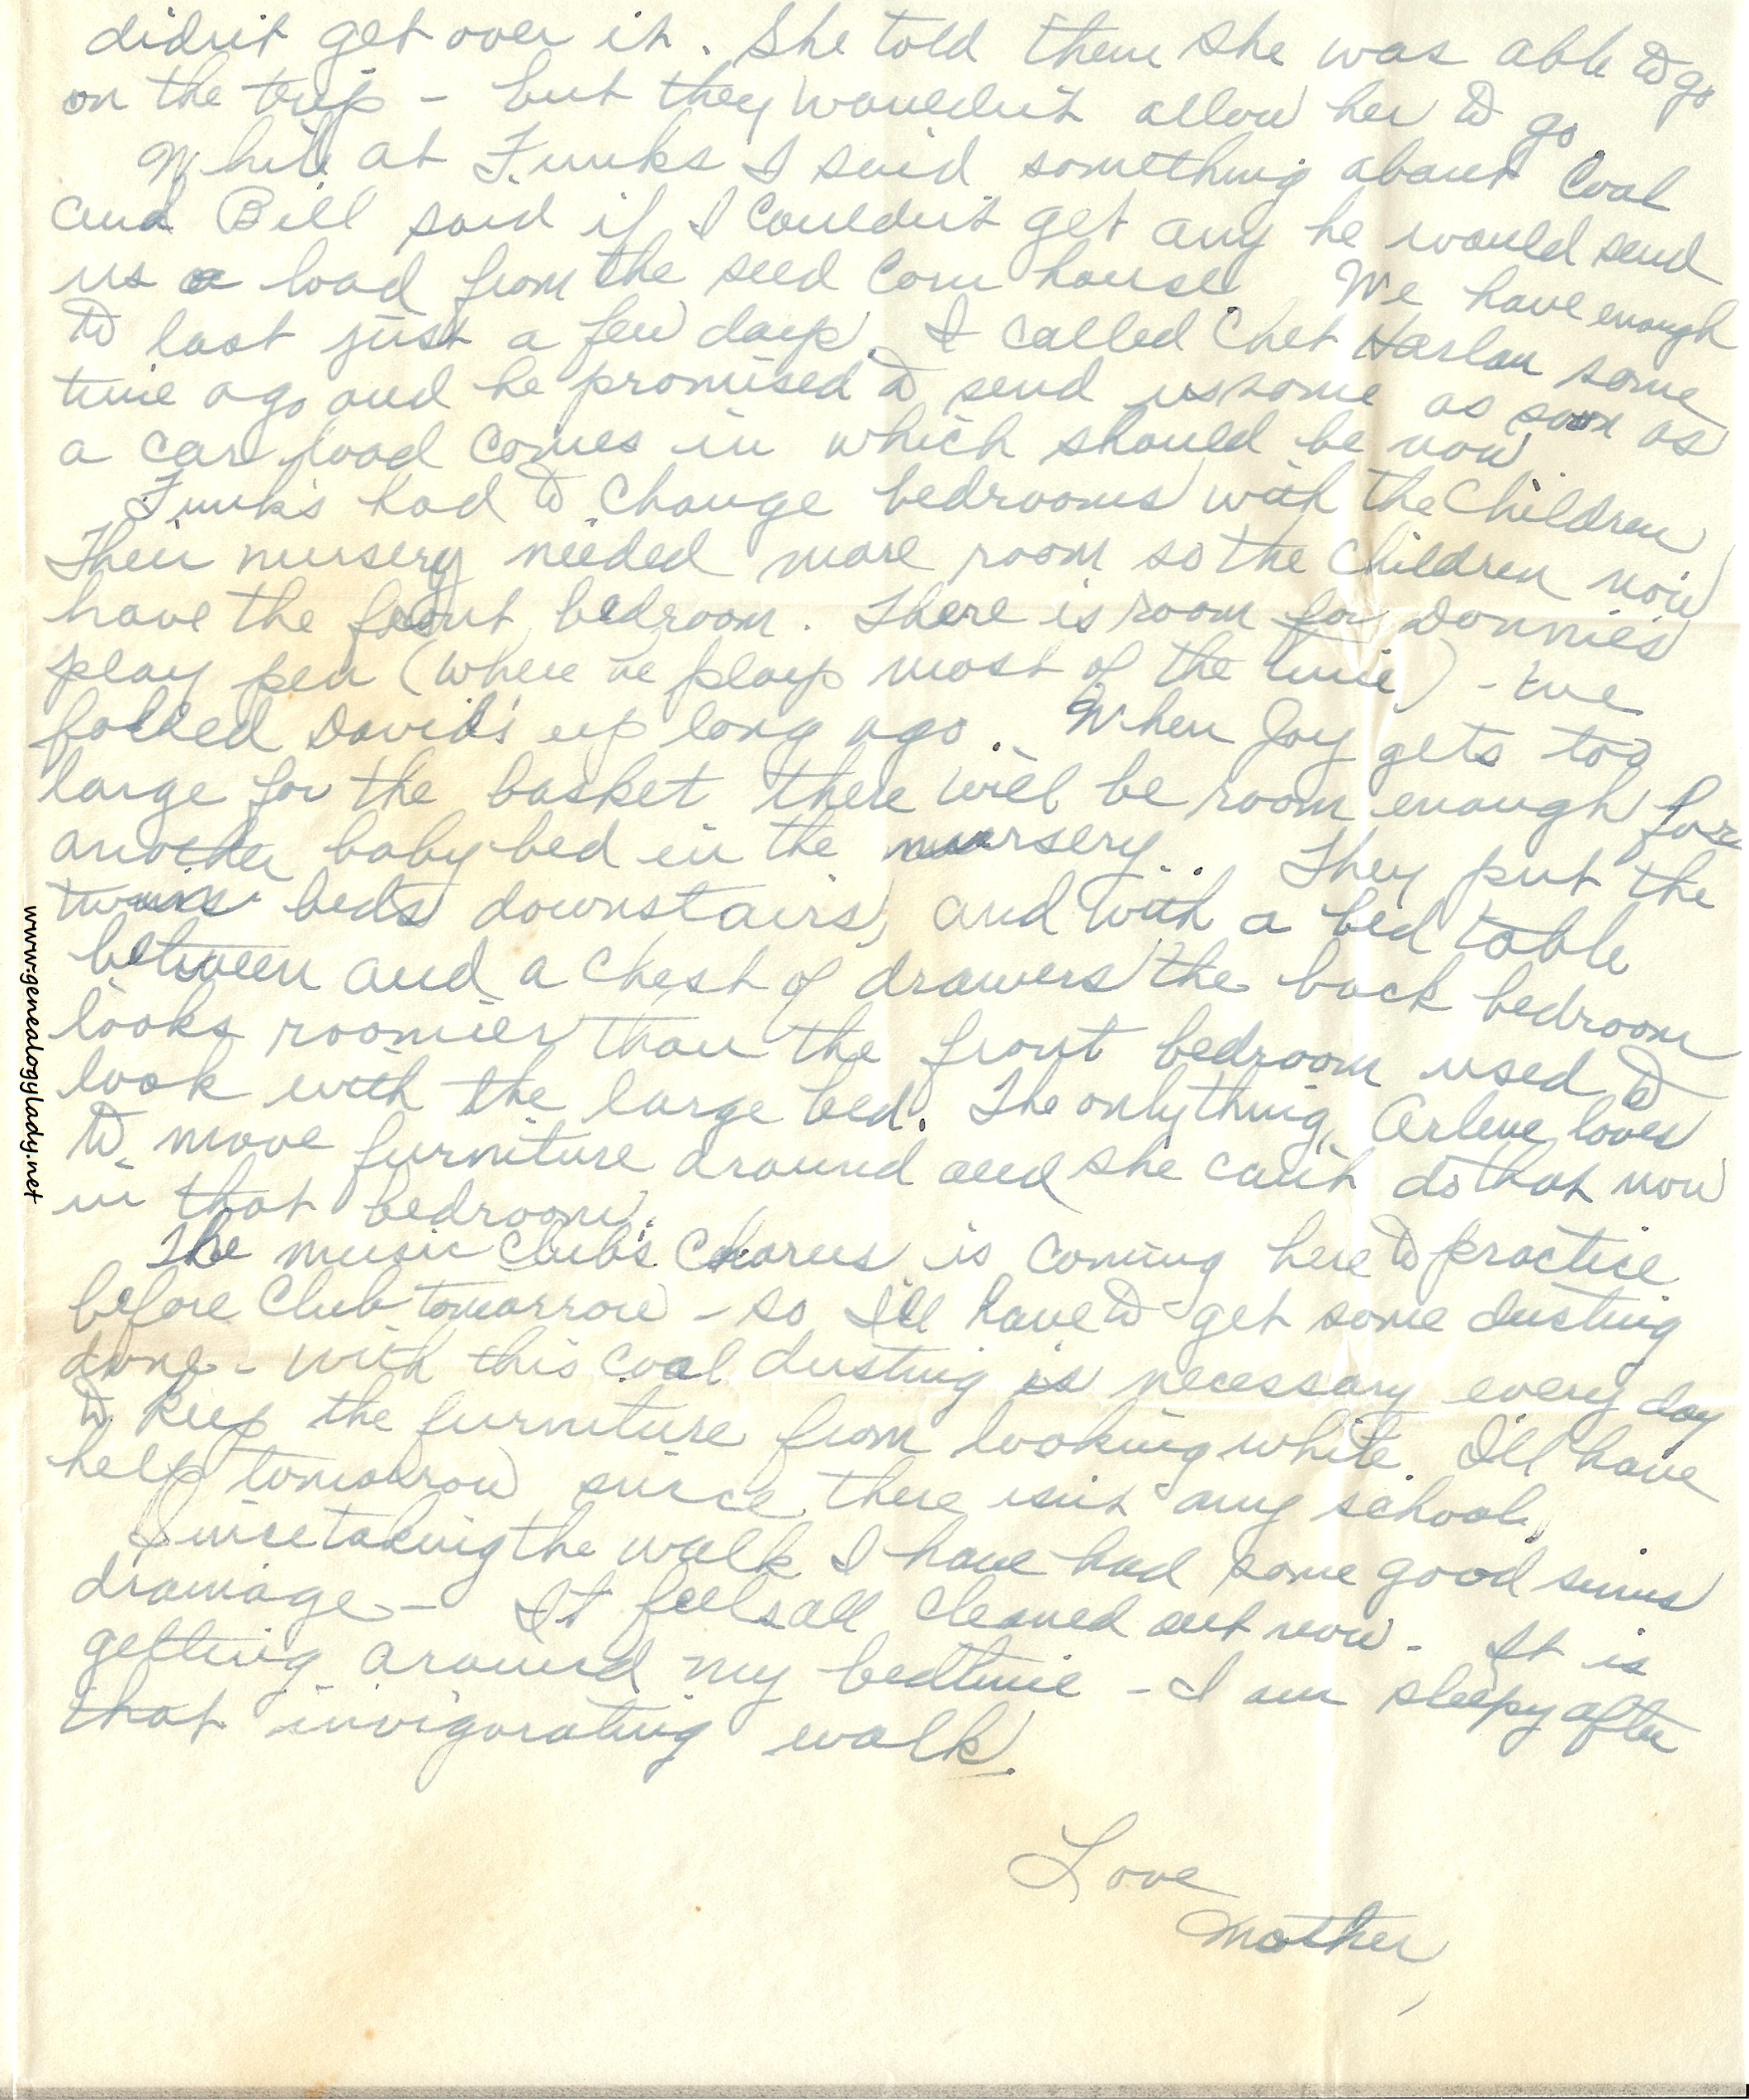 didn't get over it. She told them she was able to go
on the trip - but they wouldn't allow her to go.
While at Funks I said something about coal
and Bill said if I couldn't get any he would send
us a load from the seed corn house. We have enough
to last just a few days. I called Chet Harlan some
time ago and he promised to send us some as soon as
a car load comes in which should be now.
Funks had to change bedrooms with the children
Their nursery needed more room so the children now
have the front bedroom. There is room for Donnie's
play pen (where he plays most of the time) - we
folded David's up long ago. When Joy gets too
large for the basket there will be room enough for
another baby bed in the nursery. They put the
twins beds downstairs, and with a bed table
between and a chest of drawers the back bedroom
looks roomier than the front bedroom used to
look with the large bed. The only thing, Arlene loves
to move furniture around and she can't do that now
in that bedroom.
The music club's chorus is coming here to practice
before club tomorrow - so I'll have to get some dusting
done - with this coal dusting is necessary every day
to keep the furniture from looking white. I'll have
help tomorrow since there isn't any school.
Since taking the walk I have had some good sinus
drainage - It feels all cleaned out now - It is
getting around my bedtime - I am sleepy after
that invigorating walk.
Love
Mother
www.genealogylady.net